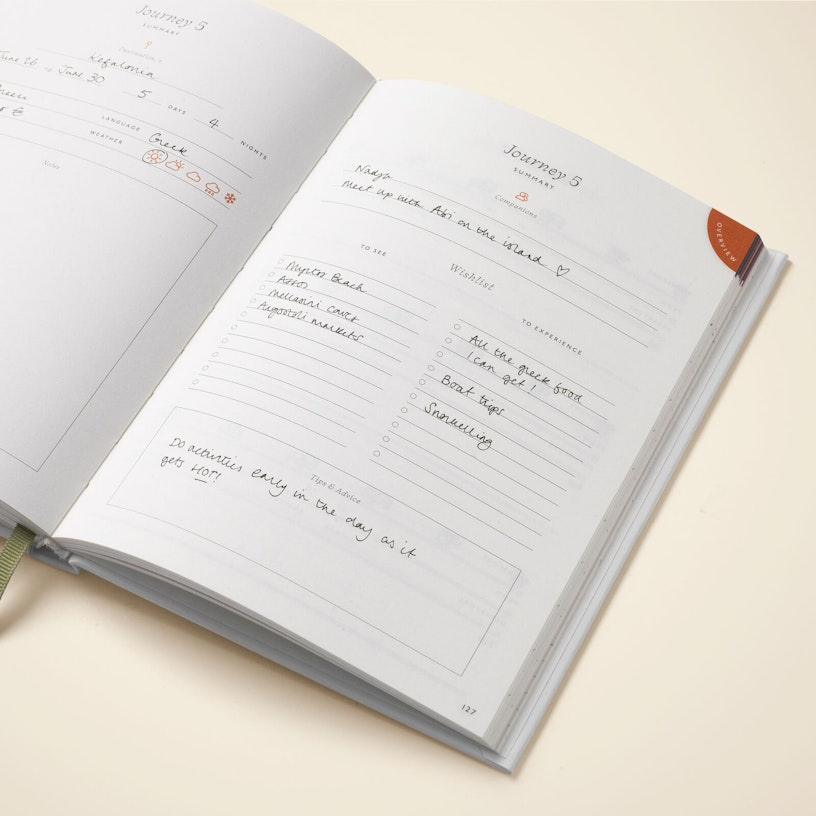 Journey 5
SUMMARY
Destination/s
Kefalonia
June 26 to June 30
5 DAYS 4 NIGHTS
LANGUAGE Greek
WEATHER
Notes
Journey 5
SUMMARY
Companions
Nadja
Meet up with Abi on the island ♡
Wishlist
TO SEE
Myrtos Beach
Assos
Melissani caves
Argostoli markets
TO EXPERIENCE
All the greek food
I can get!
Boat trips
Snorkelling
Tips & Advice
Do activities early in the day as it
gets HOT!
127
OVERVIEW